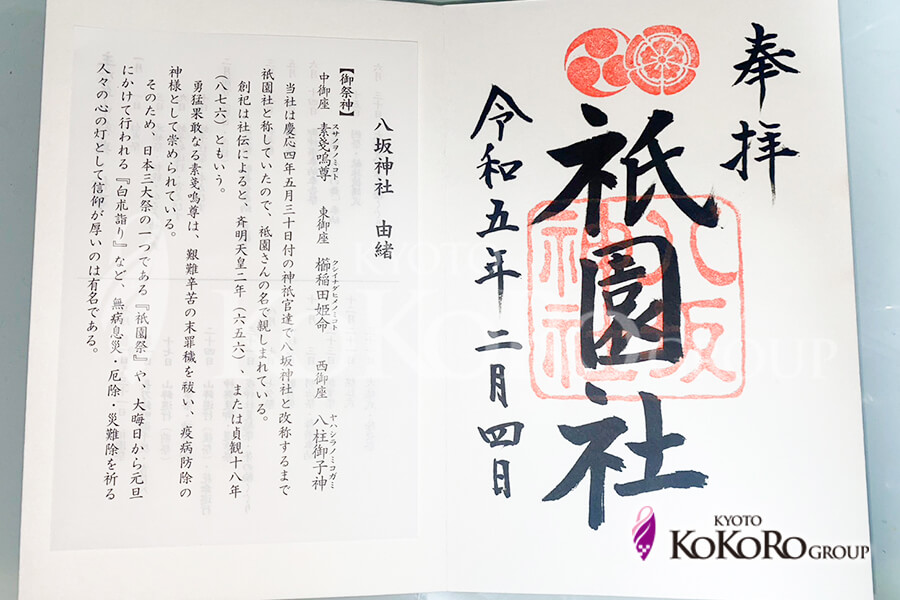 奉拝
八坂神社
祇園社
令和五年 二月四日
八坂神社 由緒
【御祭神】
中御座 素戔嗚尊 東御座 櫛稲田姫命 西御座 八柱御子神
スサノヲノミコト クシイナダヒメノミコト ヤハシラノミコガミ
当社は慶応四年五月三十日付の神祇官達で八坂神社と改称するまで
祇園社と称していたので、祇園さんの名で親しまれている。
創祀は社伝によると、斉明天皇二年（六五六）、または貞観十八年
（八七六）ともいう。
勇猛果敢なる素戔嗚尊は、艱難辛苦の末罪穢を祓い、疫病防除の
神様として崇められている。
そのため、日本三大祭の一つである『祇園祭』や、大晦日から元旦
にかけて行われる『白朮詣り』など、無病息災・厄除・災難除を祈る
人々の心の灯として信仰が厚いのは有名である。
KYOTO
KOKORO GROUP
KYOTO
KOKORO GROUP